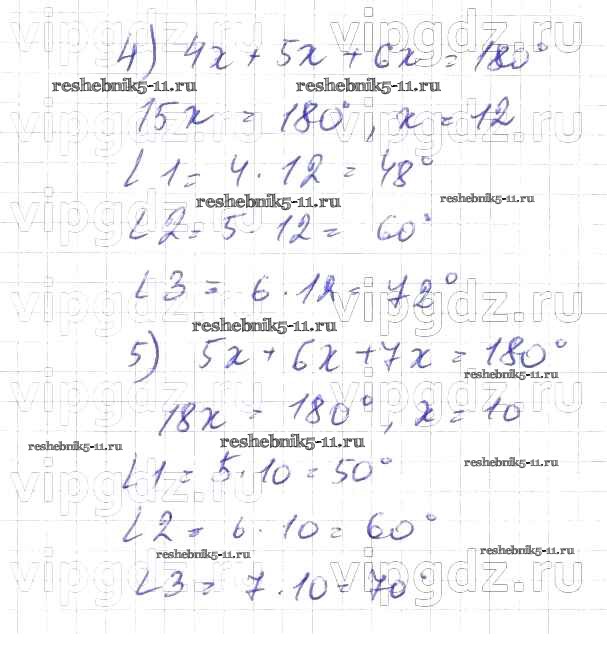 vipgdz.ru vipgdz.ru
4) 4x + 5x + 6x = 180°
reshebnik5-11.ru reshebnik5-11.ru
vipgdz.ru vipgdz.ru
15x = 180°, x = 12
∠1 = 4 · 12 = 48°
reshebnik5-11.ru reshebnik5-11.ru
vipgdz.ru vipgdz.ru
∠2 = 5 · 12 = 60°
∠3 = 6 · 12 = 72°
vipgdz.ru vipgdz.ru
reshebnik5-11.ru
5) 5x + 6x + 7x = 180°
reshebnik5-11.ru
vipgdz.ru vipgdz.ru
18x = 180°, x = 10
reshebnik5-11.ru reshebnik5-11.ru
reshebnik5-11.ru
∠1 = 5 · 10 = 50°
vipgdz.ru vipgdz.ru
∠2 = 6 · 10 = 60°
reshebnik5-11.ru reshebnik5-11.ru
vipgdz.ru vipgdz.ru
∠3 = 7 · 10 = 70°